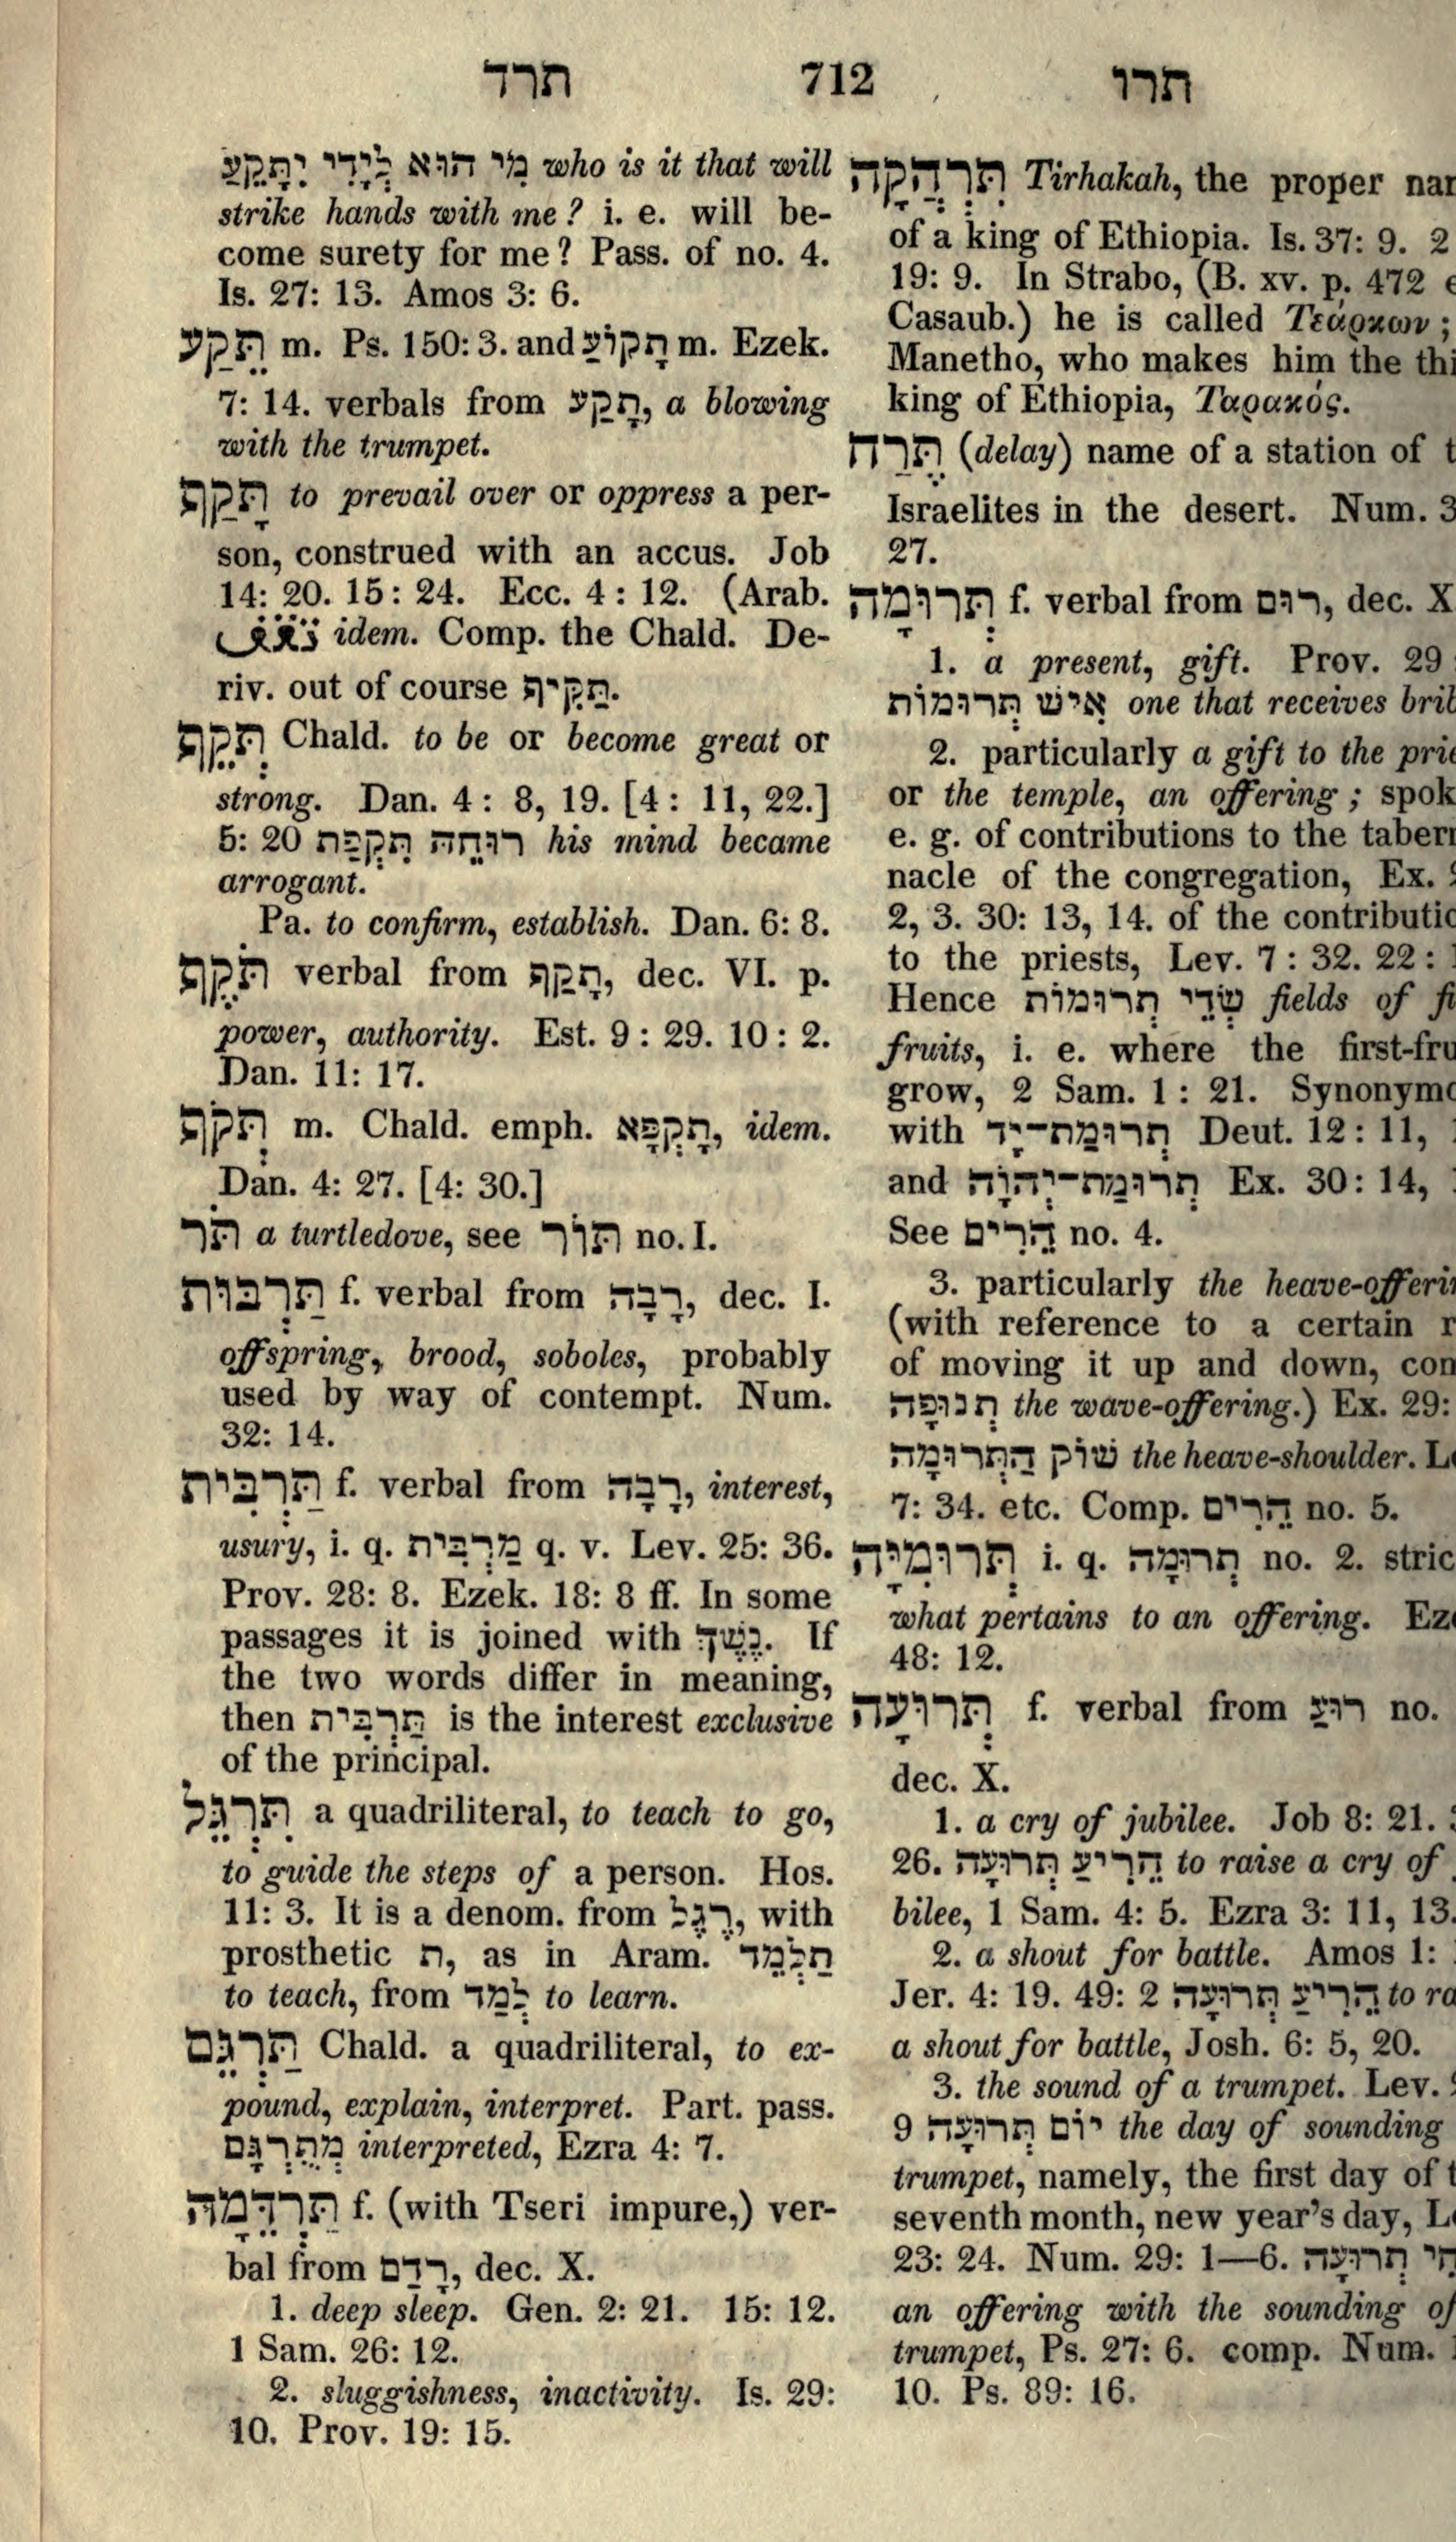 תרד 712 תרו
מִי הוּא לְיָדִי יִתָּקֵעַ who is it that will
strike hands with me? i. e. will be-
come surety for me? Pass. of no. 4.
Is. 27: 13. Amos 3: 6.
תֵּקַע m. Ps. 150: 3. and תָּקוֹעַ m. Ezek.
7: 14. verbals from תָּקַע, a blowing
with the trumpet.
תָּקַף to prevail over or oppress a per-
son, construed with an accus. Job
14: 20. 15: 24. Ecc. 4: 12. (Arab.
idem. Comp. the Chald. De-
riv. out of course תַּקִּיף.
תְּקֵף Chald. to be or become great or
strong. Dan. 4: 8, 19. [4: 11, 22.]
5: 20 רוּחֵהּ תִּקְפַת his mind became
arrogant.
Pa. to confirm, establish. Dan. 6: 8.
תֹּקֶף verbal from תָּקַף, dec. VI. p.
power, authority. Est. 9: 29. 10: 2.
Dan. 11: 17.
תְּקֹף m. Chald. emph. תָּקְפָּא, idem.
Dan. 4: 27. [4: 30.]
תֹּר a turtledove, see תּוֹר no. I.
תַּרְבּוּת f. verbal from רָבָה, dec. I.
offspring, brood, soboles, probably
used by way of contempt. Num.
32: 14.
תַּרְבִּית f. verbal from רָבָה, interest,
usury, i. q. מַרְבִּית q. v. Lev. 25: 36.
Prov. 28: 8. Ezek. 18: 8 ff. In some
passages it is joined with נֶשֶׁךְ. If
the two words differ in meaning,
then תַּרְבִּית is the interest exclusive
of the principal.
תִּרְגֵּל a quadriliteral, to teach to go,
to guide the steps of a person. Hos.
11: 3. It is a denom. from רֶגֶל, with
prosthetic ת, as in Aram. תַּלְמֵד
to teach, from לְמַד to learn.
תַּרְגֵּם Chald. a quadriliteral, to ex-
pound, explain, interpret. Part. pass.
מְתֻרְגָּם interpreted, Ezra 4: 7.
תַּרְדֵּמָה f. (with Tseri impure,) ver-
bal from רָדַם, dec. X.
1. deep sleep. Gen. 2: 21. 15: 12.
1 Sam. 26: 12.
2. sluggishness, inactivity. Is. 29:
10. Prov. 19: 15.
תִּרְהֲקָה Tirhakah, the proper
of a king of Ethiopia. Is. 37: 9. 2
19: 9. In Strabo, (B. xv. p. 472
Casaub.) he is called Τεάρκων;
Manetho, who makes him the
king of Ethiopia, Ταρακός.
תֶּרַח (delay) name of a station of
Israelites in the desert. Num.
27.
תְּרוּמָה f. verbal from רוּם, dec. X
1. a present, gift. Prov. 29
אִישׁ תְּרוּמוֹת one that receives
2. particularly a gift to the
or the temple, an offering;
e. g. of contributions to the
nacle of the congregation, Ex.
2, 3. 30: 13, 14. of the
to the priests, Lev. 7: 32. 22:
Hence שְׂדֵי תְרוּמוֹת fields of
fruits, i. e. where the
grow, 2 Sam. 1: 21.
with תְּרוּמַת־יָד Deut. 12: 11,
and תְּרוּמַת־יְהוָֹה Ex. 30: 14,
See הֵרִים no. 4.
3. particularly the
(with reference to a certain
of moving it up and down,
תְּנוּפָה the wave-offering.) Ex. 29:
שׁוֹק הַתְּרוּמָה the heave-shoulder.
7: 34. etc. Comp. הֵרִים no. 5.
תְּרוּמִיָּה i. q. תְּרוּמָה no. 2.
what pertains to an offering.
48: 12.
תְּרוּעָה f. verbal from רוּעַ no.
dec. X.
1. a cry of jubilee. Job 8: 21.
26. הֵרִיעַ תְּרוּעָה to raise a cry of
bilee, 1 Sam. 4: 5. Ezra 3: 11, 13.
2. a shout for battle. Amos 1:
Jer. 4: 19. 49: 2 הֵרִיעַ תְּרוּעָה to
a shout for battle, Josh. 6: 5, 20.
3. the sound of a trumpet. Lev.
9 יוֹם תְּרוּעָה the day of sounding
trumpet, namely, the first day of
seventh month, new year's day,
23: 24. Num. 29: 1—6. תְּרוּעָה
an offering with the sounding of
trumpet, Ps. 27: 6. comp. Num.
10. Ps. 89: 16.